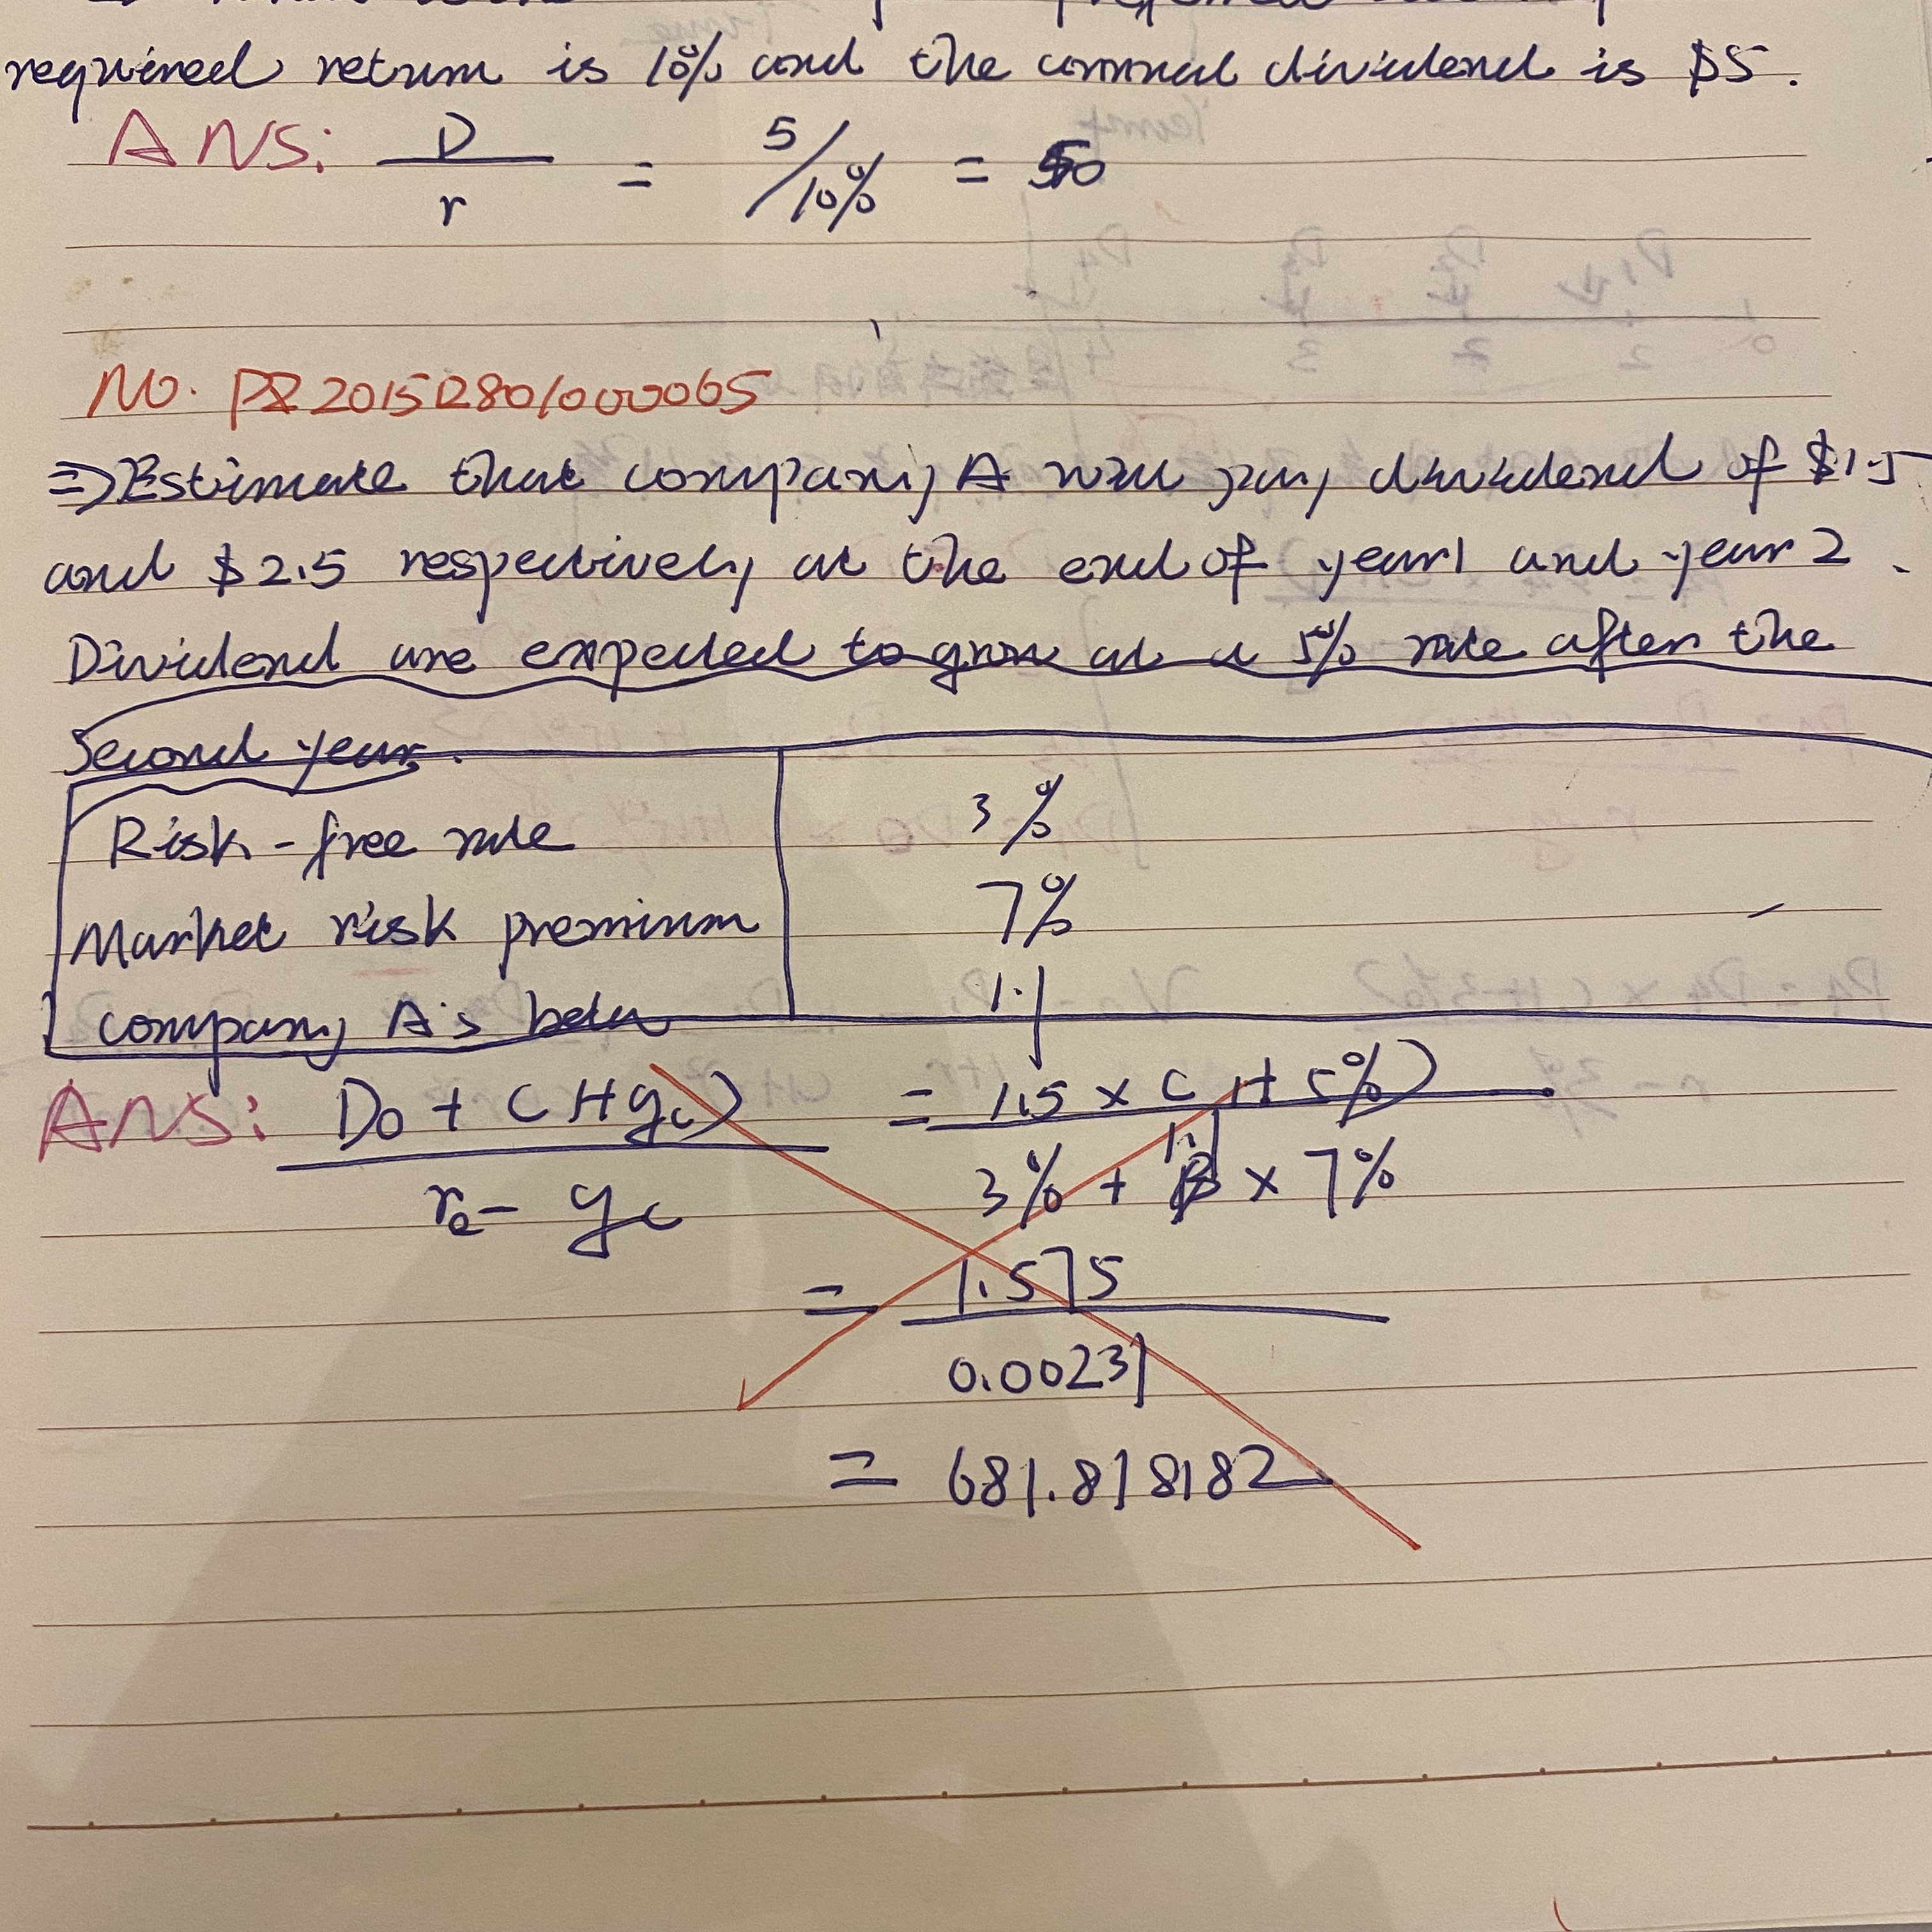 required return is 10% and the annual dividend is $5.
ANS: D/r = 5/10% = 50
NO. PZ20152801000065
⇒ Estimate that company A will pay dividend of $1.5
and $2.5 respectively at the end of year1 and year 2.
Dividend are expected to grow at a 5% rate after the
Second year.
Risk-free rate 3%
Market risk premium 7%
company A's beta 1.1
ANS: D0 + (1+gc) / re - gc = 1.5 x (1+5%) / 3% + 1.1 x 7%
= 1.575 / 0.00231
= 681.818182